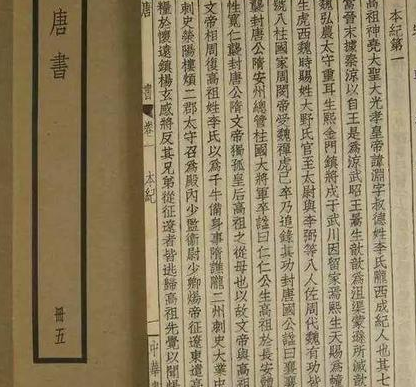 本紀第一
高祖神堯大聖大光孝皇帝諱淵字叔德姓李氏隴西成紀人也其七
當晉末據秦涼以自王是爲涼武昭王暠生歆歆爲沮渠蒙遜所滅歆
魏弘農太守重耳生熙金門鎮將戍于武川因留家焉熙生天賜爲幢
生虎西魏時賜姓大野氏官至太尉與李弼等八人佐周代魏有功皆
號八柱國家周閔帝受魏禪虎已卒乃追錄其功封唐國公諡曰襄襄
襲封唐公隋安州總管柱國大將軍卒諡曰仁仁公生高祖於長安體
性寬仁襲封唐公隋文帝獨孤皇后高祖之從母也以故文帝與高祖
文帝相周復高祖姓李氏以爲千牛備身事隋譙隴二州刺史大業中
刺史滎陽樓煩二郡太守召爲殿內少監衛尉少卿煬帝征遼東遣高
糧於懷遠鎮楊玄感將反其兄弟從征遼者皆逃歸高祖先覺以聞煬
唐書 卷一 本紀 中華
唐書
冊五